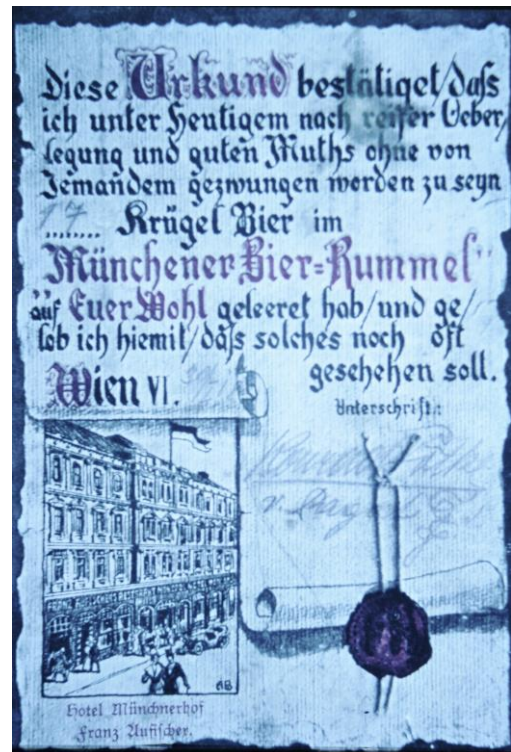 Diese Urkund bestätiget/daß
ich unter Heutigem nach reifer Ueber/
legung und guten Muths ohne von
Jemandem gezwungen worden zu seyn
17 Krügel Bier im
"Münchener Bier=Rummel"
auf Euer Wohl geleeret hab/und ge/
lob ich hiemit/daß solches noch oft
geschehen soll.
Wien VI.
Unterschrift:
AB
Hotel Münchnerhof
Franz Aufischer.